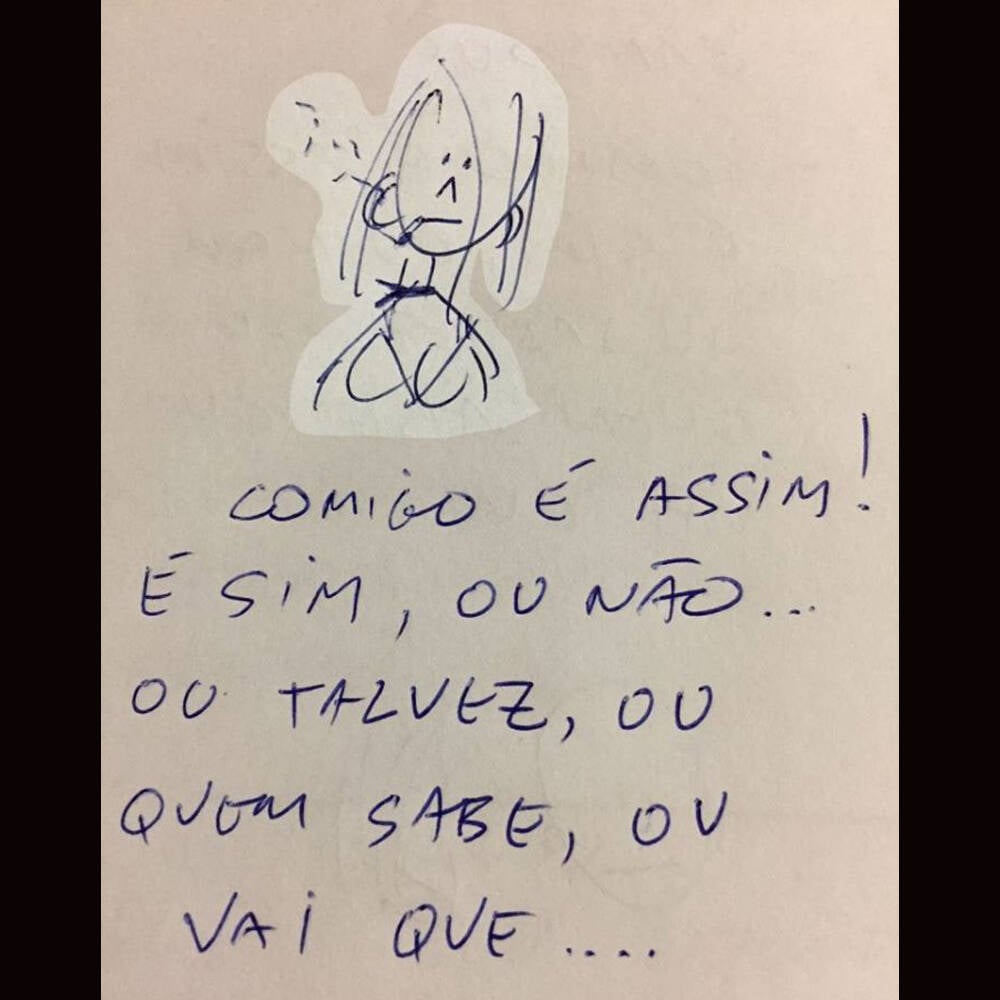 COMIGO É ASSIM!
É SIM, OU NÃO...
OU TALVEZ, OU
QUEM SABE, OU
VAI QUE....